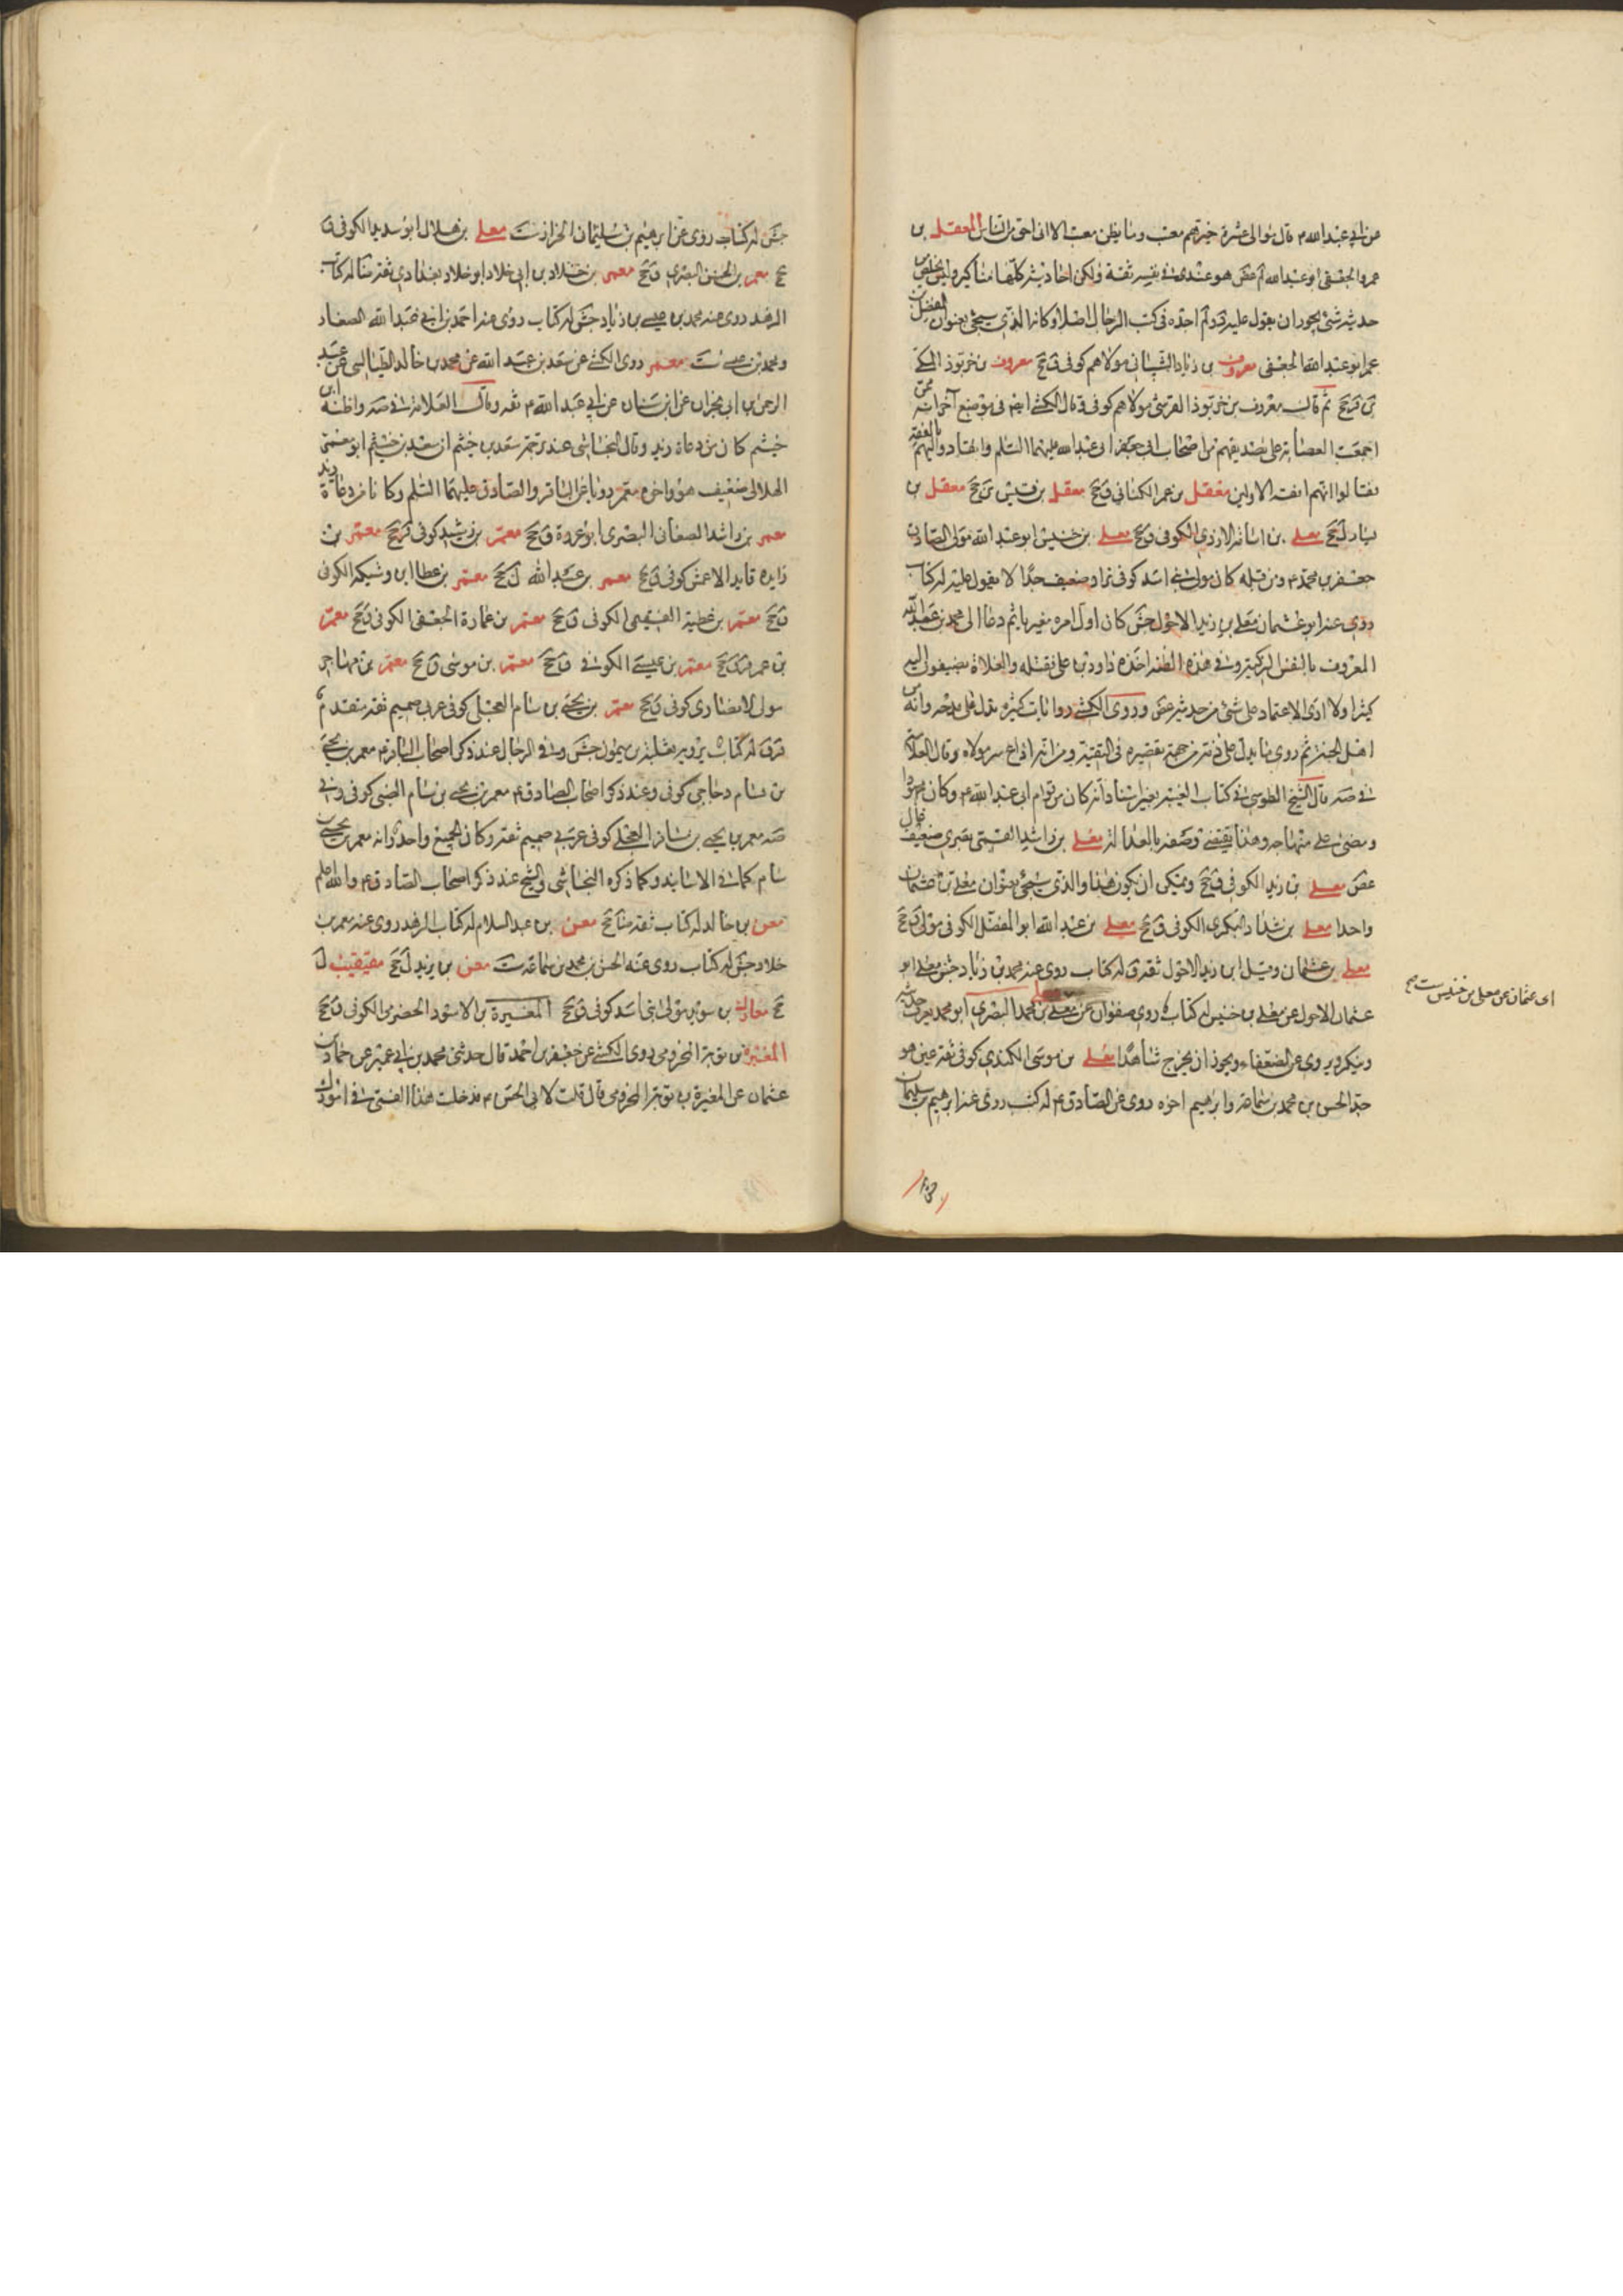 عن ابي عبد الله م قال موالي عشرة خيرهم معتب وما يظن معتب الا اني احق من الناس المعقل بن
عمر والجعفي ابو عبد الله عض هو عندي في نفسه ثقة ولكن احاديثه كلها مناكير وليس يخلص من
حديثه شيء يجوز ان يعول عليه ولم اجده في كتب الرجال اصلا وكانه الذي سيجيء بعنوان المفضل بن
عمر ابو عبد الله الجعفي معروف بن زياد الشيباني مولاهم كوفي ق جخ معروف بن خربوذ المكي
ين قر جخ ثم قال معروف بن خربوذ القرشي مولاهم كوفي ق قال الكشي انه في موضع آخر انه ممن
اجمعت العصابة على تصديقهم من اصحاب ابي جعفر وابي عبد الله عليهما السلم وانقادوا لهم بالفقه
فقالوا انهم افقه الاولين معقل بن عمر الكناني ق جخ معقل بن قيس ي جخ معقل بن
يسار ل جخ معلى بن اسامة الازدي الكوفي ق جخ معلى بن خنيس ابو عبد الله مولى الصادق
جعفر بن محمد م ومن قبله كان مولى بني اسد كوفي بزاز ضعيف جدا لا يعول عليه له كتاب
روى عنه ابو عثمان معلى بن زيد الاحول جش كان اول امره مغيريا ثم دعا الى محمد بن عبد الله
المعروف بالنفس الزكية وفي هذه الظنة اخذه داود بن علي فقتله والغلاة يضيفون اليه
كثيرا ولا ارى الاعتماد على شيء من حديثه عض وروى الكشي روايات كثيرة تدل على مدحه وانه من
اهل الجنة ثم روى ما يدل على ذمه من جهة تقصيره في التقية ومن انه اذاع سر مولاه وقال العلامة
في صه قال الشيخ الطوسي في كتاب الغيبة بغير اسناد انه كان من قوام ابي عبد الله م وكان محمودا
ومضى على منهاجه وهذا يقتضي وصفه بالعدالة معلى بن راشد القمي بصري ضعيف قال
عض معلى بن زيد الكوفي ق جخ ويمكن ان يكون هذا والذي سيجيء بعنوان معلى بن عثمان
واحدا معلى بن شداد البكري الكوفي ق جخ معلى بن عبد الله ابو المفضل الكوفي مولى ق جخ
معلى بن عثمان وقيل ابن زيد الاحول ثقة ق له كتاب روى عنه محمد بن زياد جش معلى ابو
عثمان الاحول عن معلى بن خنيس له كتاب روى صفوان عنه معلى بن محمد البصري ابو محمد يعرف حديثه
وينكر ويروي عن الضعفاء ويجوز ان يخرج شاهدا معلى بن موسى الكندي كوفي ثقة عين هو
جد الحسن بن محمد بن سماعة وابراهيم اخوه روى عن الصادق م له كتب روى عنه ابراهيم بن سليمان
اى عثمان عن معلى بن خنيس ست مح
جش له كتاب روى عن ابرهيم بن سليمان الخزاز ست معلى بن هلال ابو سديد الكوفي ق
جخ معمر بن الحسن البصري ق جخ معمر بن خلاد بن ابي خلاد ابو خلاد بغدادي ثقة ضا له كتاب
الزهد روى عنه محمد بن عيسى بن زياد جش له كتاب روى عنه احمد بن ابي عبد الله الصفار
ومحمد بن عيسى ست معمر روى الكشي عن سعد بن عبد الله عن محمد بن خالد الطيالسي عن عبد
الرحمن بن ابي نجران عن ابن سنان عن ابي عبد الله م ثقة وقال العلامة في صه واظنه ابن
خيثم كان من دعاة زيد وقال النجاشي عند ترجمة سعد بن خيثم ان سعد بن خيثم ابو معمر
الهلالي ضعيف هو واخوه معمر رويا عن الباقر والصادق عليهما السلم وكانا من دعاة زيد
معمر بن راشد الصنعاني البصري ابو عروة ق جخ معمر بن رشيد كوفي قر جخ معمر بن
زايده قايد الاعمش كوفي ق جخ معمر بن عبد الله ل جخ معمر بن عطا ابن وشيكه الكوفي
ق جخ معمر بن عطية التيمي الكوفي ق جخ معمر بن عمارة الجعفي الكوفي ق جخ معمر
بن عمر قر ق جخ معمر بن عيسى الكوفي ق جخ معمر بن موسى ق جخ معمر بن مهاجر
مولى الانصاري كوفي ق جخ معمر بن يحيى بن سام العجلي كوفي عربي صميم ثقة متقدم
قر ق له كتاب يرويه ثعلبة بن ميمون جش وفي الرجال عند ذكر اصحاب الباقر م معمر بن يحيى
بن سام دجاجي كوفي وعند ذكر اصحاب الصادق م معمر بن يحيى بن سام الضبي كوفي وفي
صه معمر بن يحيى بن مسافر العجلي كوفي عربي صميم ثقة وكان الجميع واحد وانه معمر بن يحيى بن
سام كما في الاسانيد وكما ذكره النجاشي والشيخ عند ذكر اصحاب الصادق م والله اعلم
معن بن خالد له كتاب ثقة ضا جخ معن بن عبد السلام له كتاب الزهد روى عنه معمر بن
خلاد جش له كتاب روى عنه الحسن بن محمد بن سماعة ست معن بن يزيد ل جخ معيقيب ل
جخ مغارك بن سويد مولى بني اسد كوفي ق جخ المغيرة بن الاسود الحضرمي الكوفي ق جخ
المغيرة بن توبة المخزومي روى الكشي عن جعفر بن احمد قال حدثني محمد بن ابي عمير عن حماد بن
عثمان عن المغيرة بن توبة المخزومي قال قلت لابي الحسن م قد حملت هذا الفتى في امورك